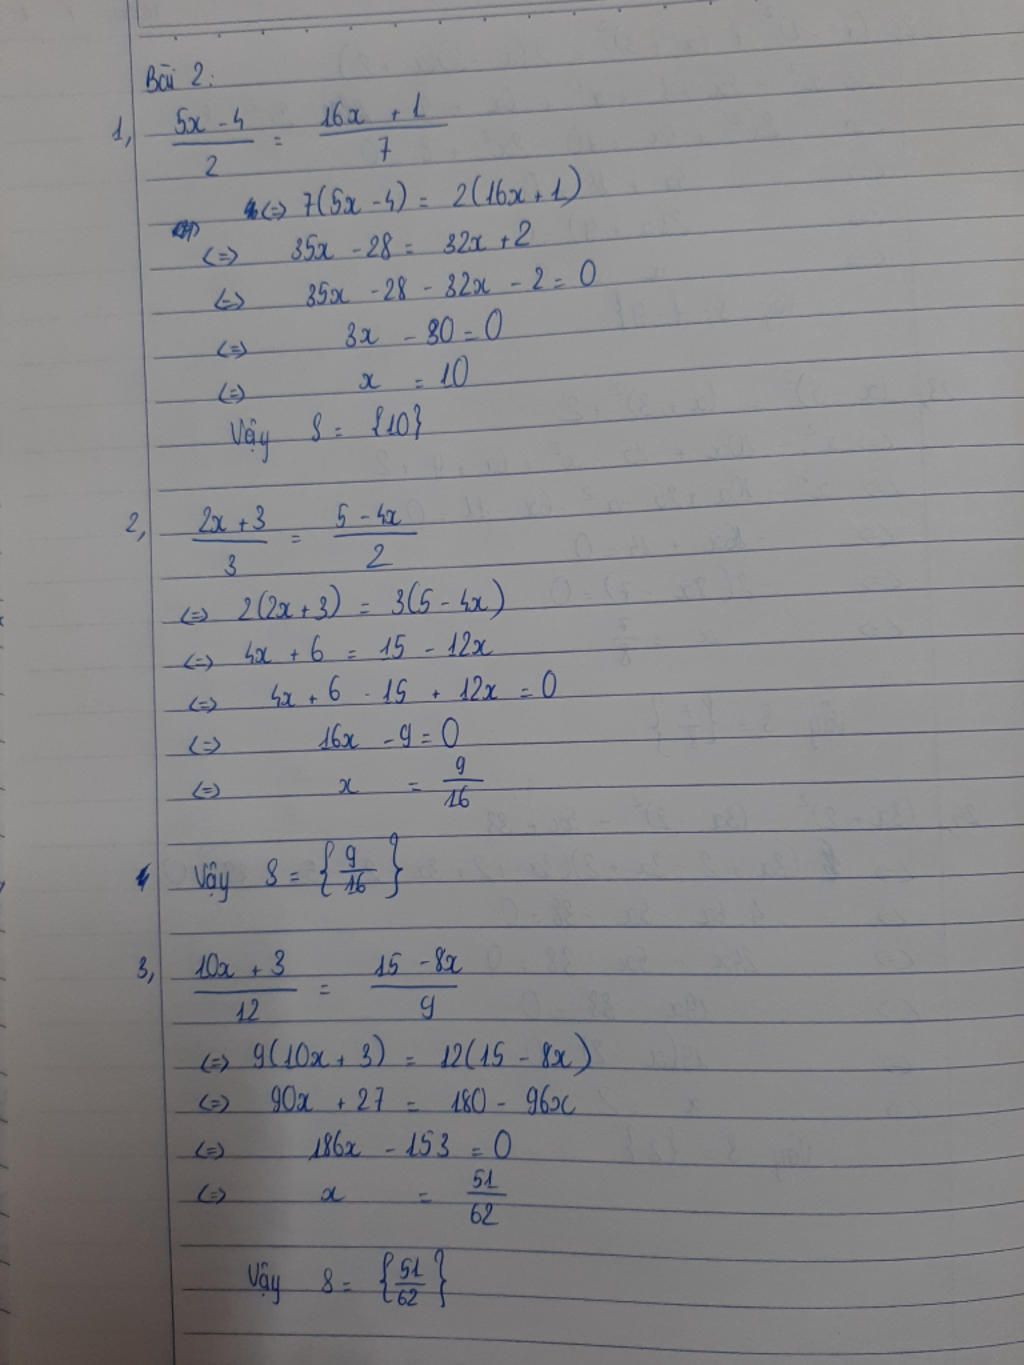 Bài 2:
1, (5x - 4)/2 = (16x + 1)/7
<=> 7(5x - 4) = 2(16x + 1)
<=> 35x - 28 = 32x + 2
<=> 35x - 28 - 32x - 2 = 0
<=> 3x - 30 = 0
<=> x = 10
Vậy S = {10}
2, (2x + 3)/3 = (5 - 4x)/2
<=> 2(2x + 3) = 3(5 - 4x)
<=> 4x + 6 = 15 - 12x
<=> 4x + 6 - 15 + 12x = 0
<=> 16x - 9 = 0
<=> x = 9/16
Vậy S = {9/16}
3, (10x + 3)/12 = (15 - 8x)/9
<=> 9(10x + 3) = 12(15 - 8x)
<=> 90x + 27 = 180 - 96x
<=> 186x - 153 = 0
<=> x = 51/62
Vậy S = {51/62}